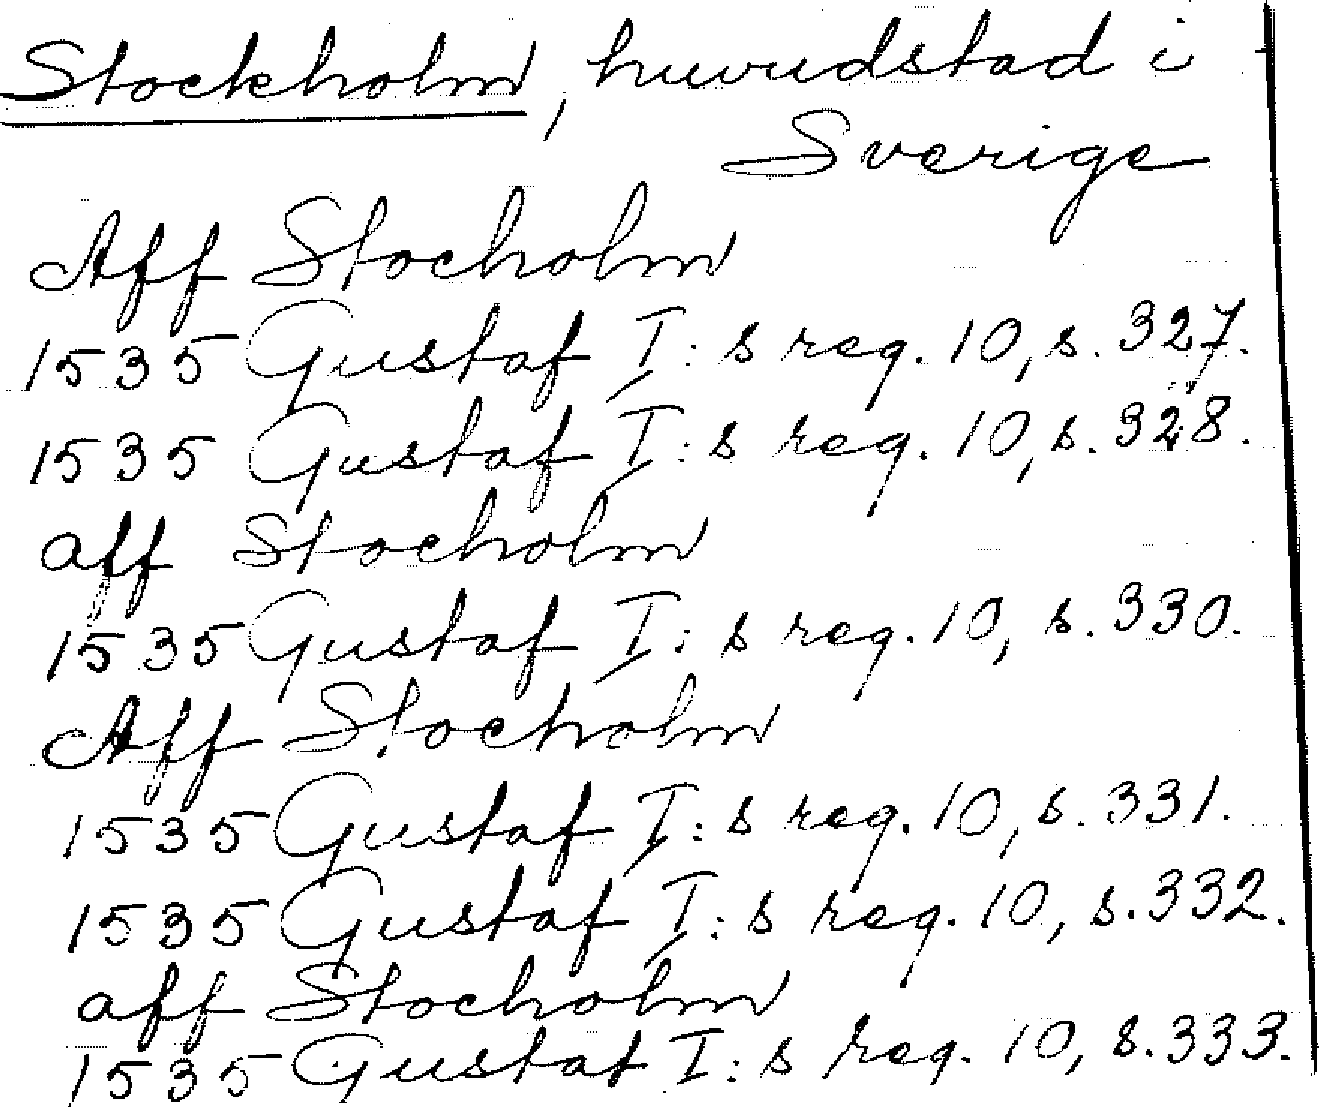 Stockholm, huvudstad i
Sverige
Aff Stocholm
1535 Gustaf I:s reg. 10, s. 327.
1535 Gustaf I:s reg. 10, s. 328.
aff Stocholm
1535 Gustaf I:s reg. 10, s. 330.
Aff Stocholm
1535 Gustaf I:s reg. 10, s. 331.
1535 Gustaf I:s reg. 10, s. 332.
aff Stocholm
1535 Gustaf I:s reg. 10, s. 333.